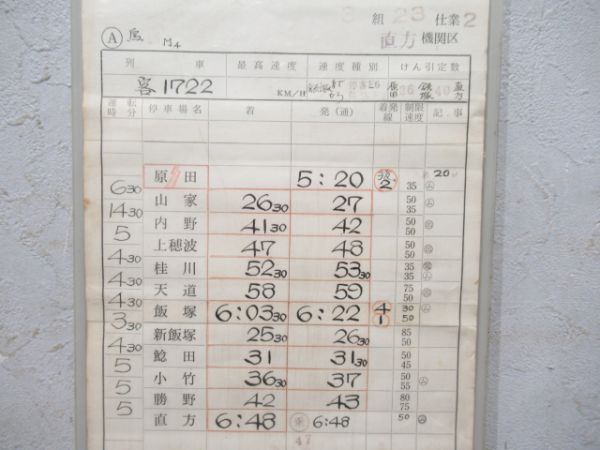 3 組 23 仕業2
Ⓐ 鳥 M4 直方 機関区
列 車 最高速度 速度種別 けん引定数
客1722 KM/H
運転時分 停車場名 着 発(通) 着発線 制限速度 記事
原田 5:20 2 20
630 35
山家 2630 27 50 35
1430
内野 4130 42 50
5
上穂波 47 48 50
430
桂川 5230 5330 35 35
430
天道 58 59 75 50
430
飯塚 6:0330 6:22 4 1 30 50
330
新飯塚 2530 2630 85 50
430
鯰田 31 3130 50 45
5
小竹 3630 37 50 55
5
勝野 42 43 80 75
5
直方 6:48 6:48 50
47